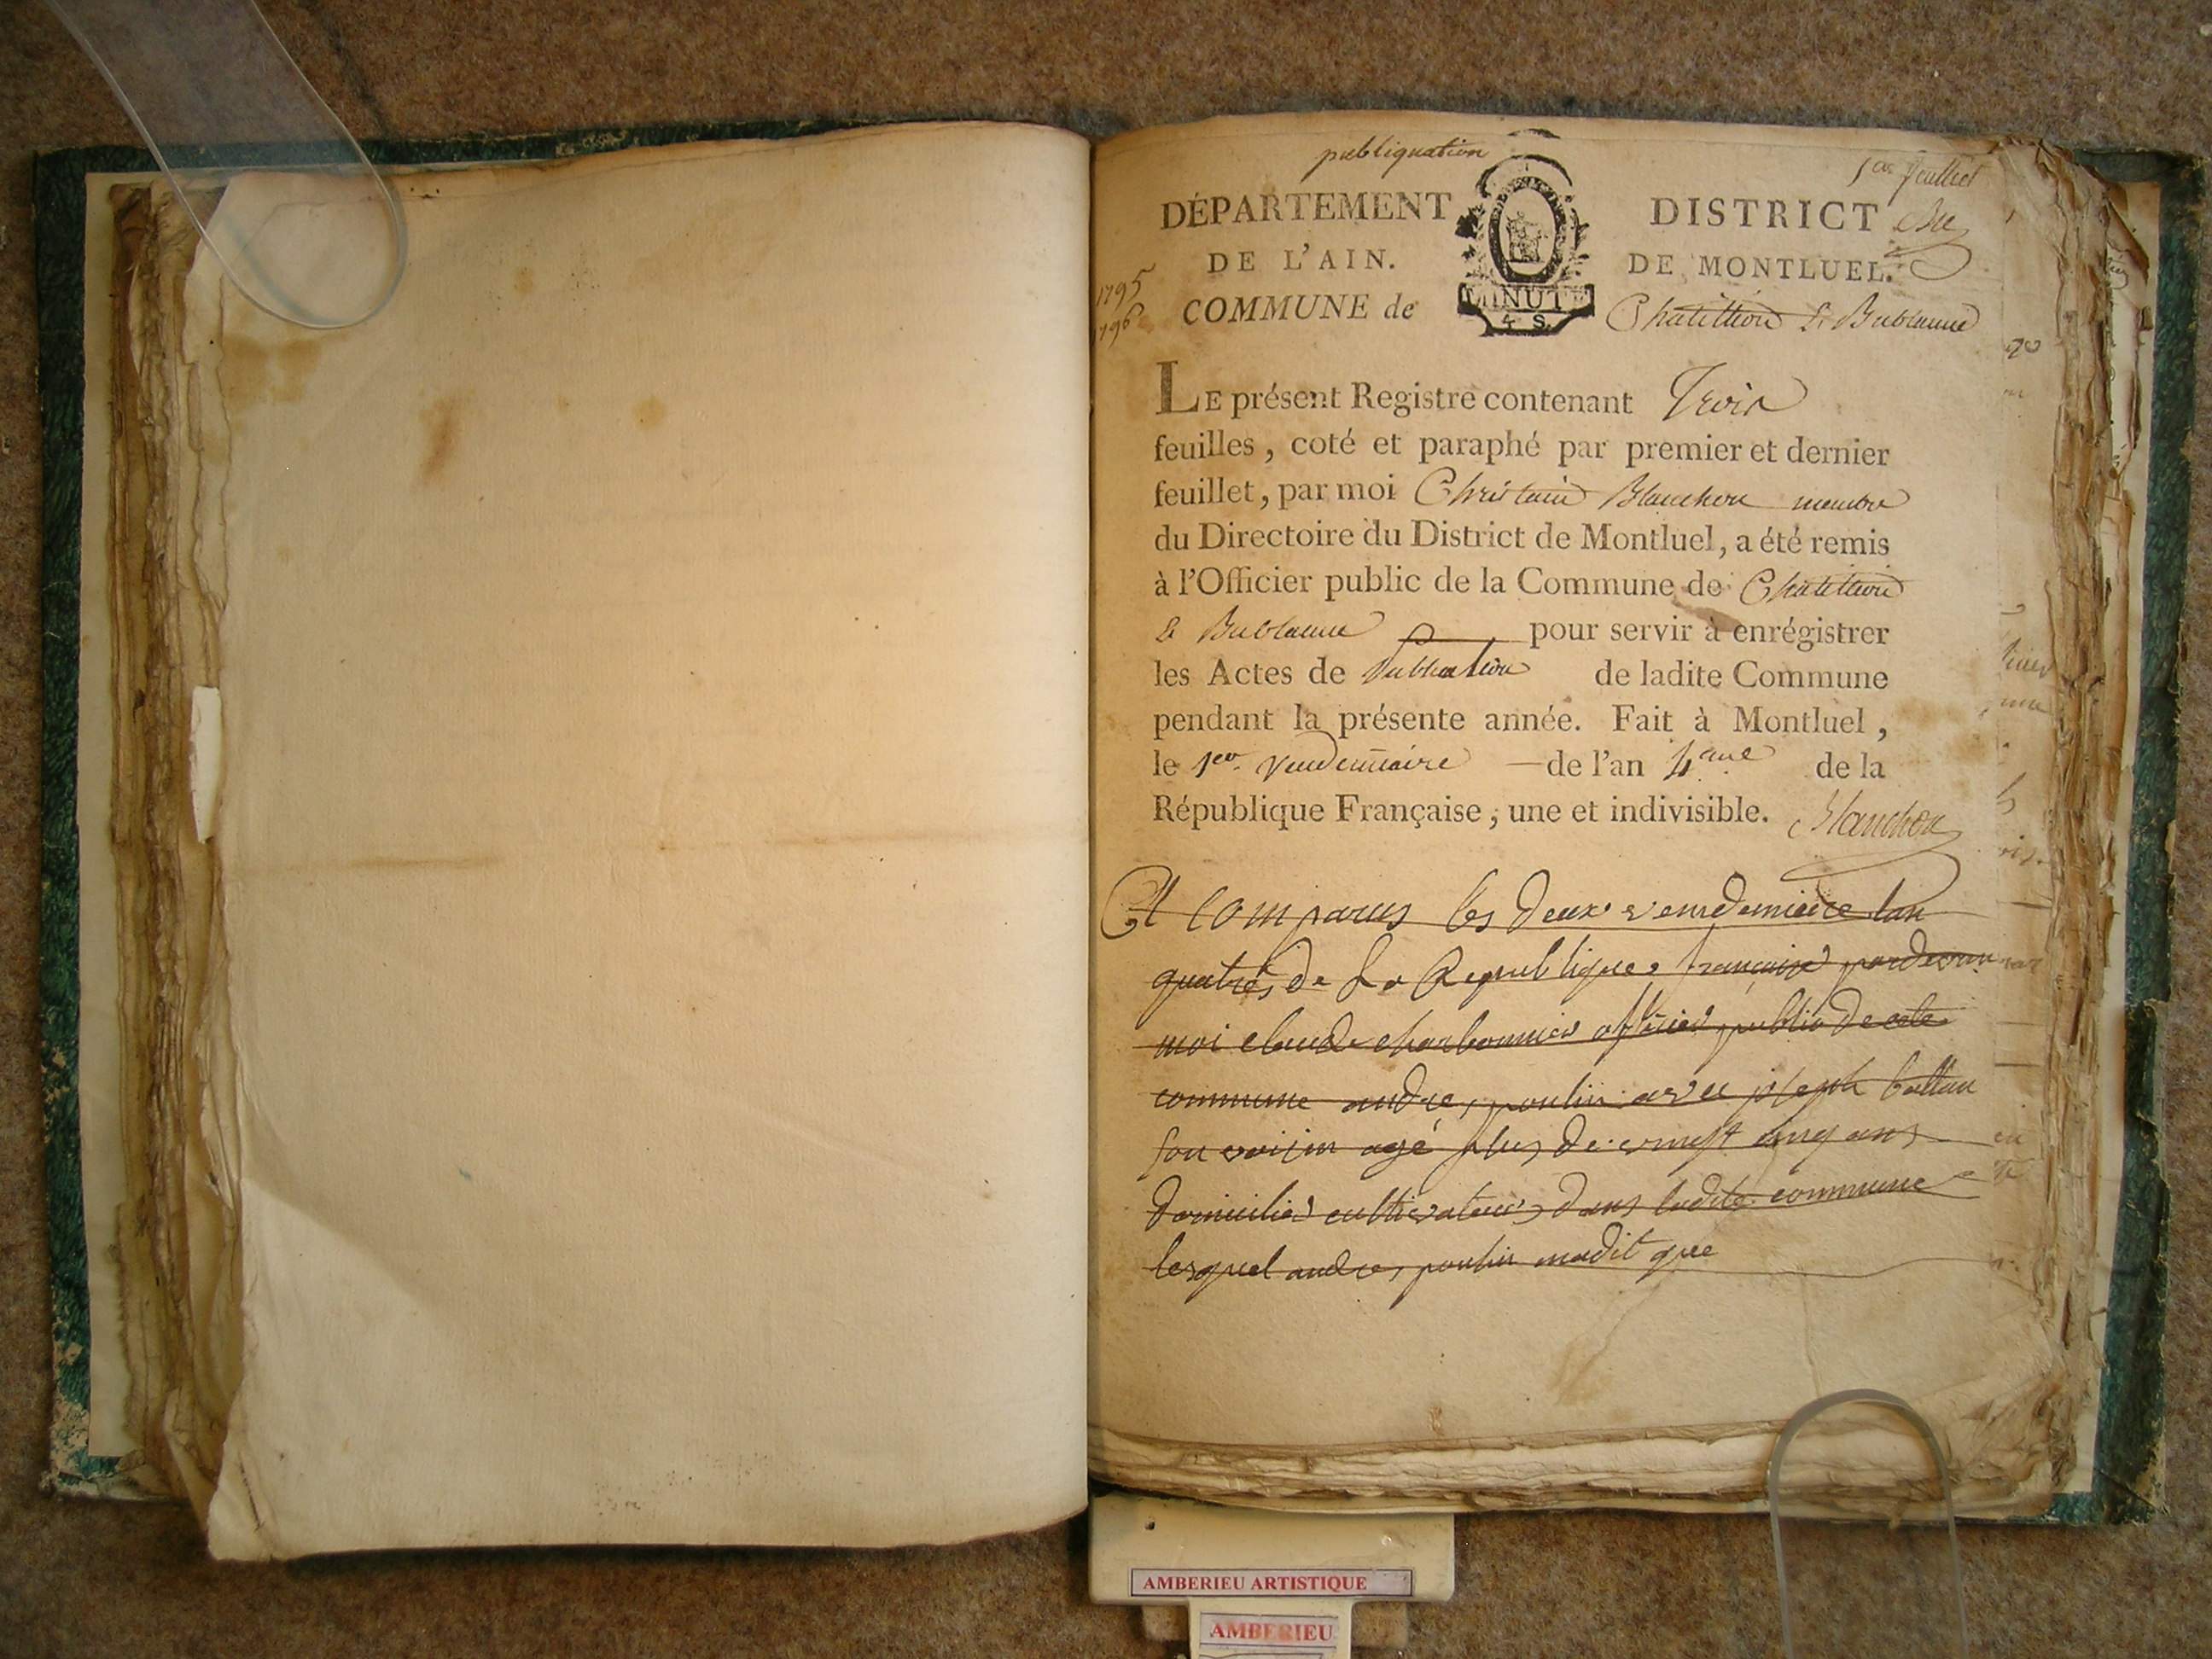 publiquation
1er feuillet
DÉPARTEMENT DISTRICT
DE L'AIN. DE MONTLUEL.
1795
1796
COMMUNE de Chatillion L. Bublanne
MINUTE
4 S.
LE présent Registre contenant Trois
feuilles, coté et paraphé par premier et dernier
feuillet, par moi Blanchon membre
du Directoire du District de Montluel, a été remis
à l'Officier public de la Commune de Chatillion
L Bublanne pour servir à enrégistrer
les Actes de Publication de ladite Commune
pendant la présente année. Fait à Montluel,
le 1er. Vendemiaire de l'an 4eme de la
République Française, une et indivisible. Blanchon
A comparus les deux vendemiaire lan
quatres de La Republique française pardevan
moi claude charbonnier officier public de cete
commune andre, poulin avec joseph ballan
son voisin agé plus de vingt cinq ans
domicilies cultivateurs dans ladite commune
lesquel andre, poulin madit que
AMBERIEU ARTISTIQUE
AMBERIEU